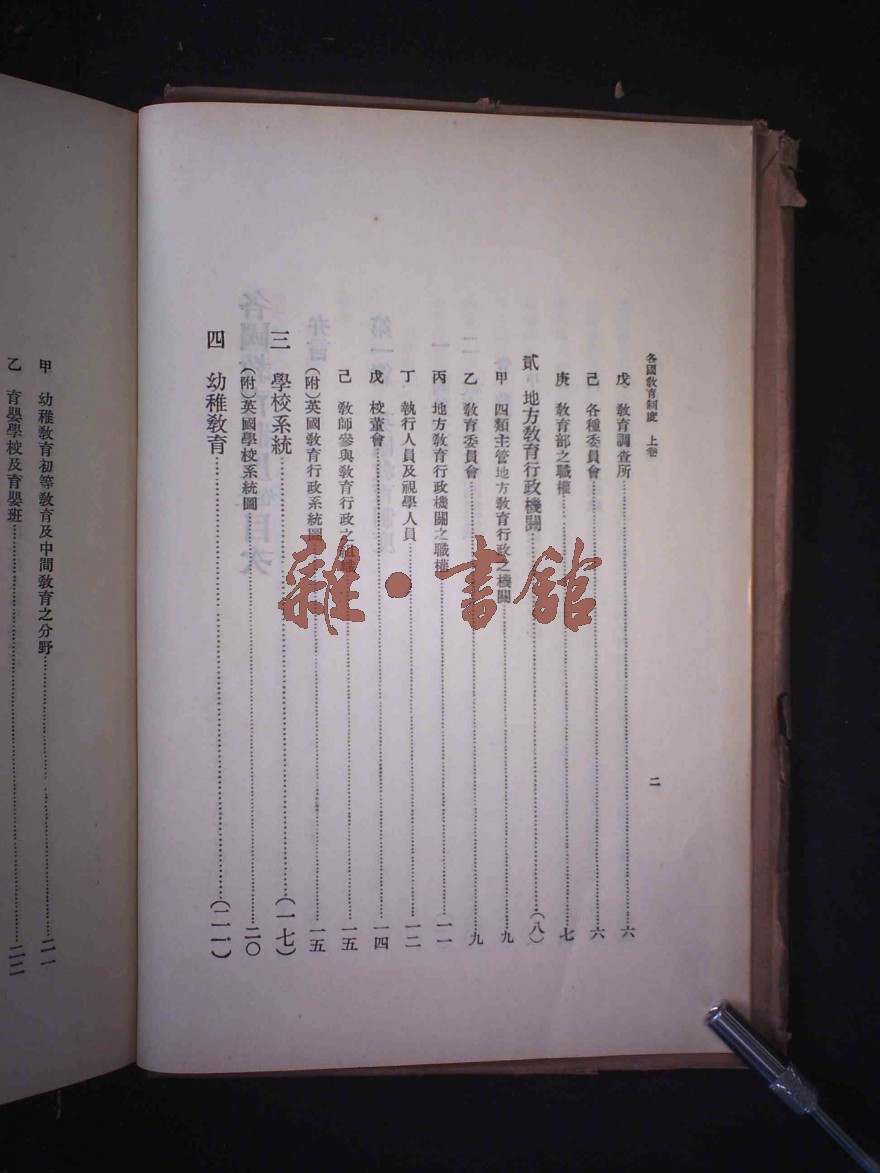 各國教育制度　上卷
二
戊　教育調查所……六
己　各種委員會……六
庚　教育部之職權……七
貳　地方教育行政機關……(八)
甲　四類主管地方教育行政之機關……九
乙　教育委員會……九
丙　地方教育行政機關之職權……一一
丁　執行人員及視學人員……一二
戊　校董會……一四
己　教師參與教育行政之組織……一五
(附)英國教育行政系統圖……一五
三　學校系統……(一七)
(附)英國學校系統圖……二〇
四　幼稚教育……(二一)
甲　幼稚教育初等教育及中間教育之分野……二一
乙　育嬰學校及育嬰班……二二
雜·書館